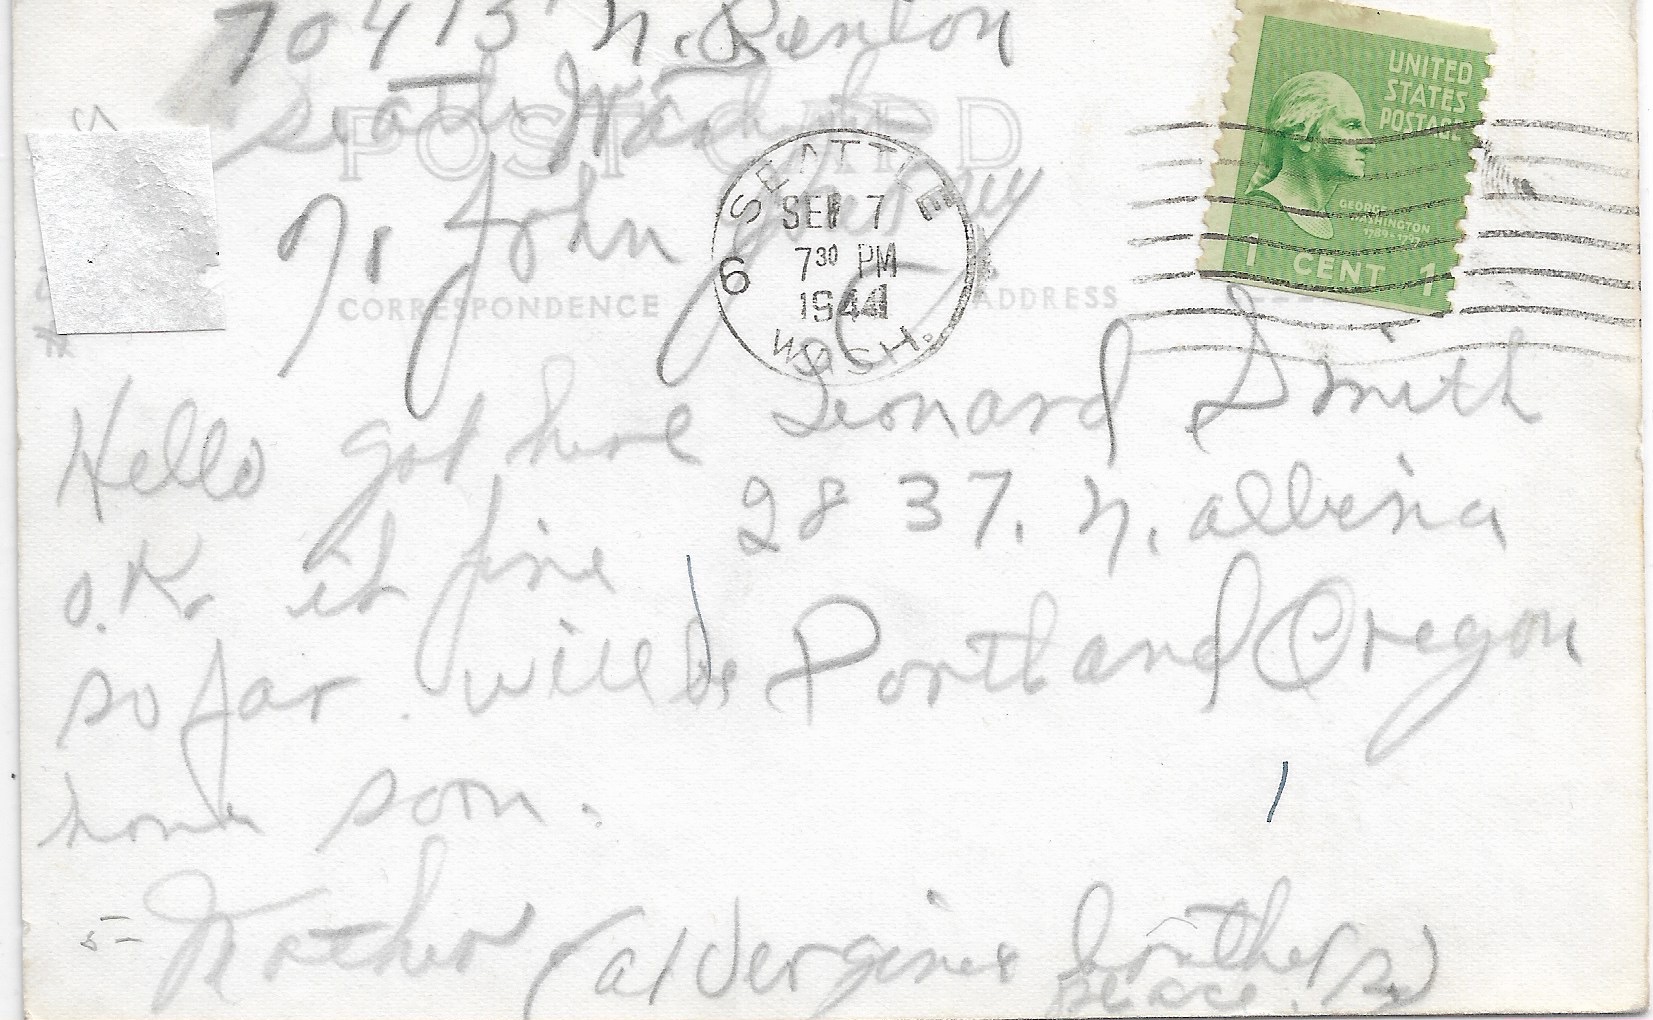 70413 N. Renton
Seattle Wash
POST CARD
% John
SEATTLE
SEP 7
7 30 PM
1944
WASH.
6
UNITED
STATES
POSTAGE
GEORGE
WASHINGTON
1789-1797
1 CENT 1
CORRESPONDENCE
ADDRESS
Hello got here
O.K. it fine
so far. will be
home soon.
Mother
Leonard Smith
2837. N. albina
Portland Oregon
5-
(at Vergines
place.